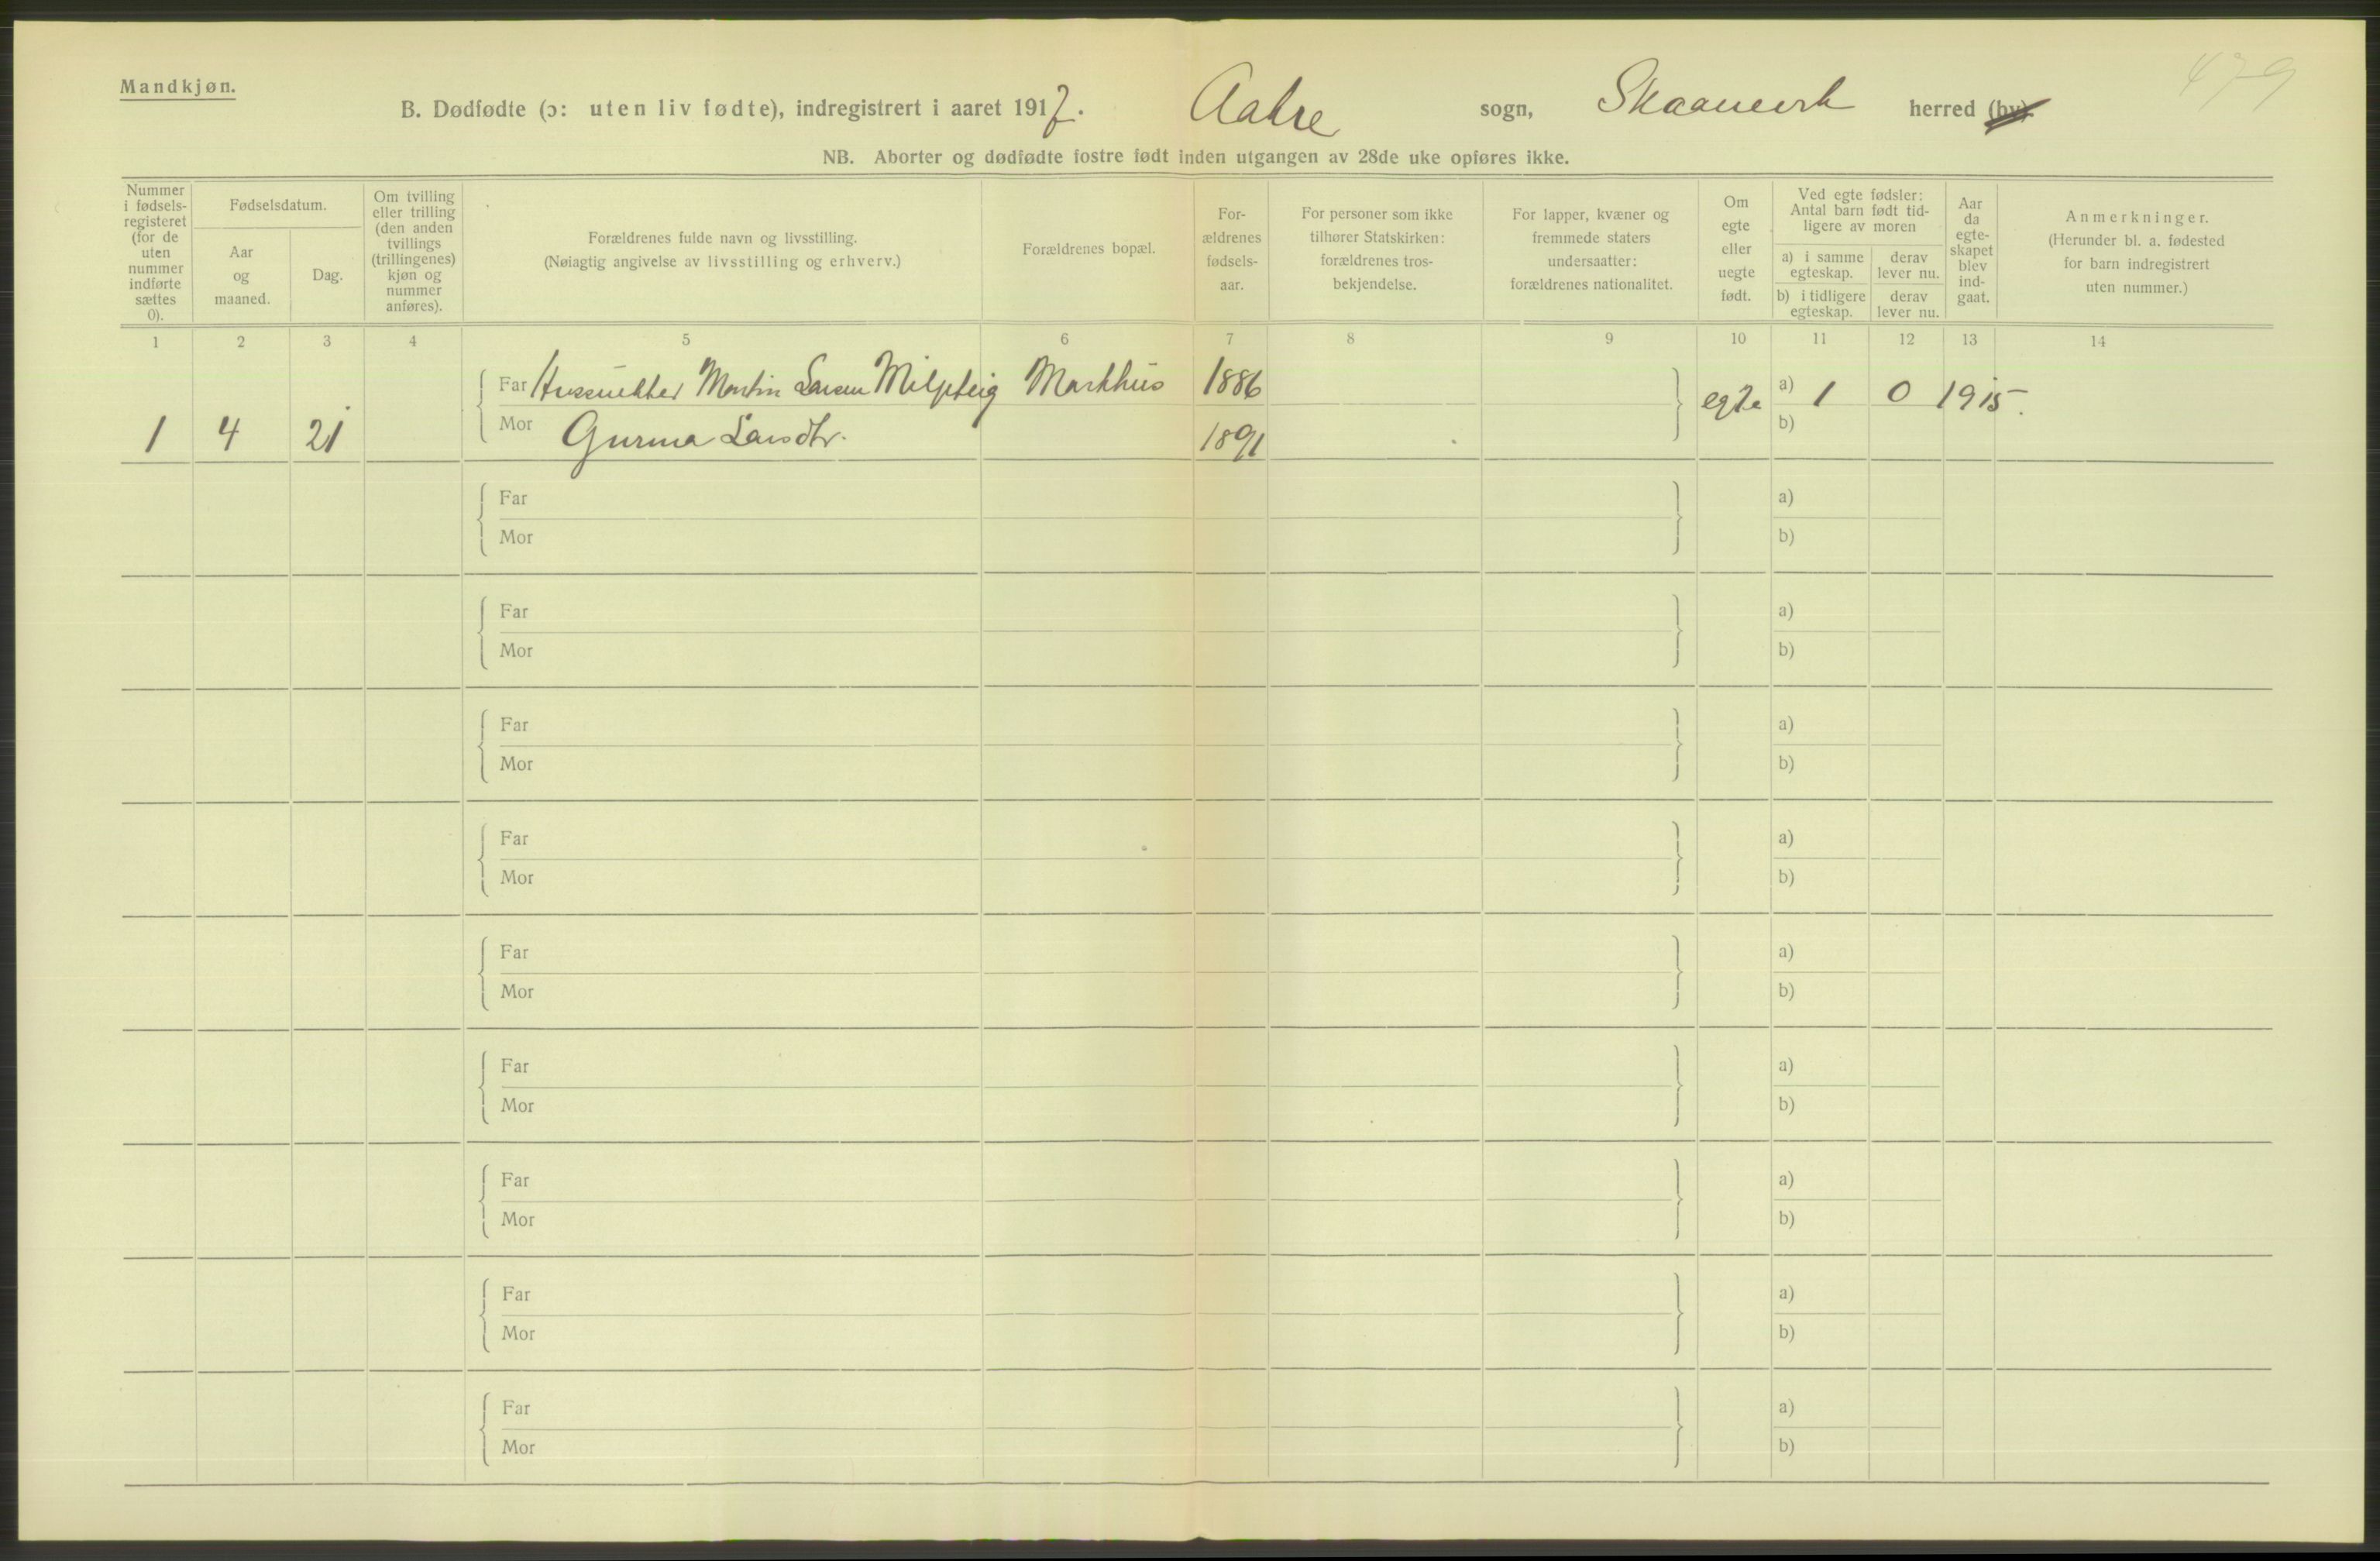 479
Mandkjøn.
B. Dødfødte (ɔ: uten liv fødte), indregistrert i aaret 1917. Aakre sogn, Skaanevik herred (by)
NB. Aborter og dødfødte fostre født inden utgangen av 28de uke opføres ikke.
Nummer i fødsels- registeret (for de uten nummer indførte sættes 0).
Fødselsdatum.
Aar og maaned.
Dag.
Om tvilling eller trilling (den anden tvillings (trillingenes) kjøn og nummer anføres).
Forældrenes fulde navn og livsstilling.
(Nøiagtig angivelse av livsstilling og erhverv.)
Forældrenes bopæl.
For- ældrenes fødsels- aar.
For personer som ikke tilhører Statskirken: forældrenes tros- bekjendelse.
For lapper, kvæner og fremmede staters undersaatter: forældrenes nationalitet.
Om egte eller uegte født.
Ved egte fødsler: Antal barn født tid- ligere av moren
a) i samme egteskap.
derav lever nu.
b) i tidligere egteskap.
derav lever nu.
Aar da egte- skapet blev ind- gaat.
Anmerkninger.
(Herunder bl. a. fødested for barn indregistrert uten nummer.)
1 2 3 4 5 6 7 8 9 10 11 12 13 14
Far Martin Larsen Markhus 1886 egte a) 1 0 1915.
1 4 21 Mor Gurina Larsdtr. 1891 b)
Far a)
Mor b)
Far a)
Mor b)
Far a)
Mor b)
Far a)
Mor b)
Far a)
Mor b)
Far a)
Mor b)
Far a)
Mor b)
Far a)
Mor b)
Far a)
Mor b)